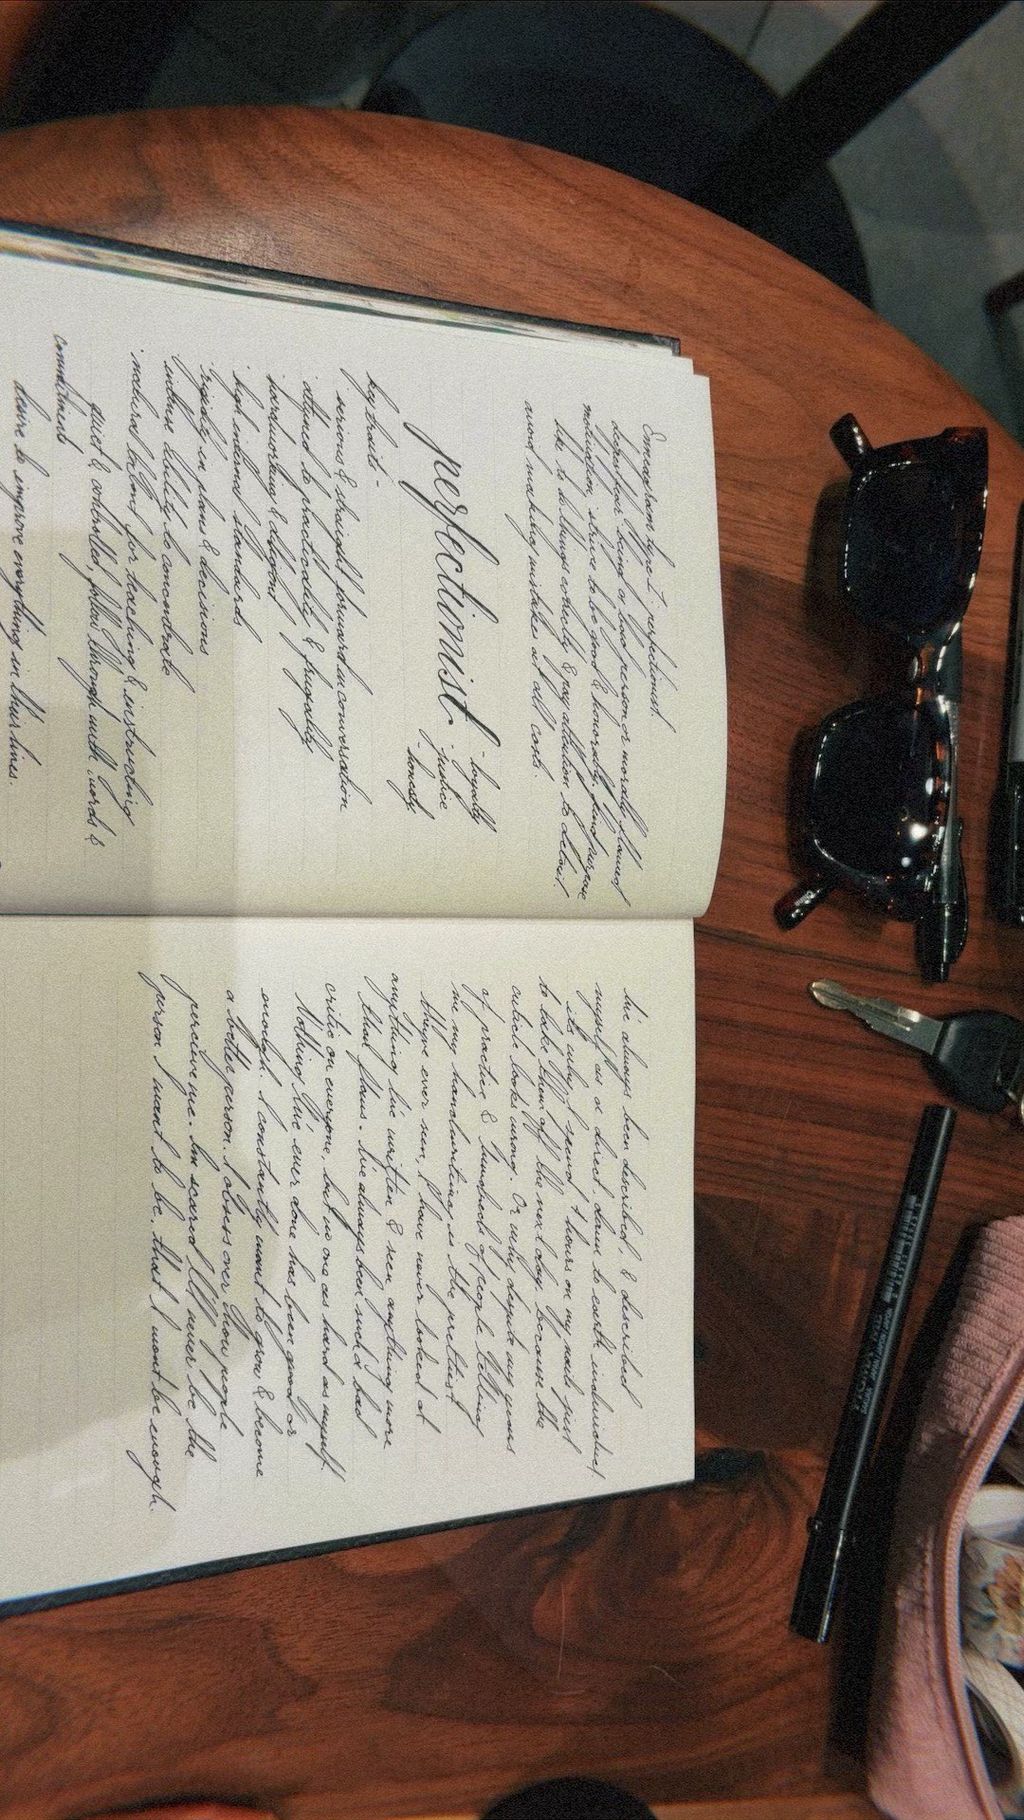 Enneagram type 1. perfectionist.
despises being a bad person or morally flawed
motivation, strive to be good & honorable, find purpose
like to do things correctly & pay attention to detail.
avoid making mistakes at all costs.
perfectionist.
- loyalty
- justice
- honesty
key traits -
serious & straight forward in conversation
attuned to practicality & frugality
hardworking & diligent
high internal standards
rigidity in plans & decisions
intense ability to concentrate
natural talent for teaching & instructing
quiet & controlled follow through with words &
commitments
desire to improve everything in their lives.
I've always been described, & described
myself as a direct, down to earth individual
its why I spend 4 hours on my nails just
to take them off the next day, because the
cuticle looks wrong. Or why despite my years
of practice & hundreds of people telling
me my handwriting is the prettiest
they've ever seen, I have never looked at
anything I've written & seen anything more
than flaws. I've always been such a bad
critic on everyone, but no one as hard as myself.
Nothing I've ever done has been good or
enough. I constantly want to grow & become
a better person. I obsess over how people
perceive me. Im scared I'll never be the
person I want to be. that I wont be enough.